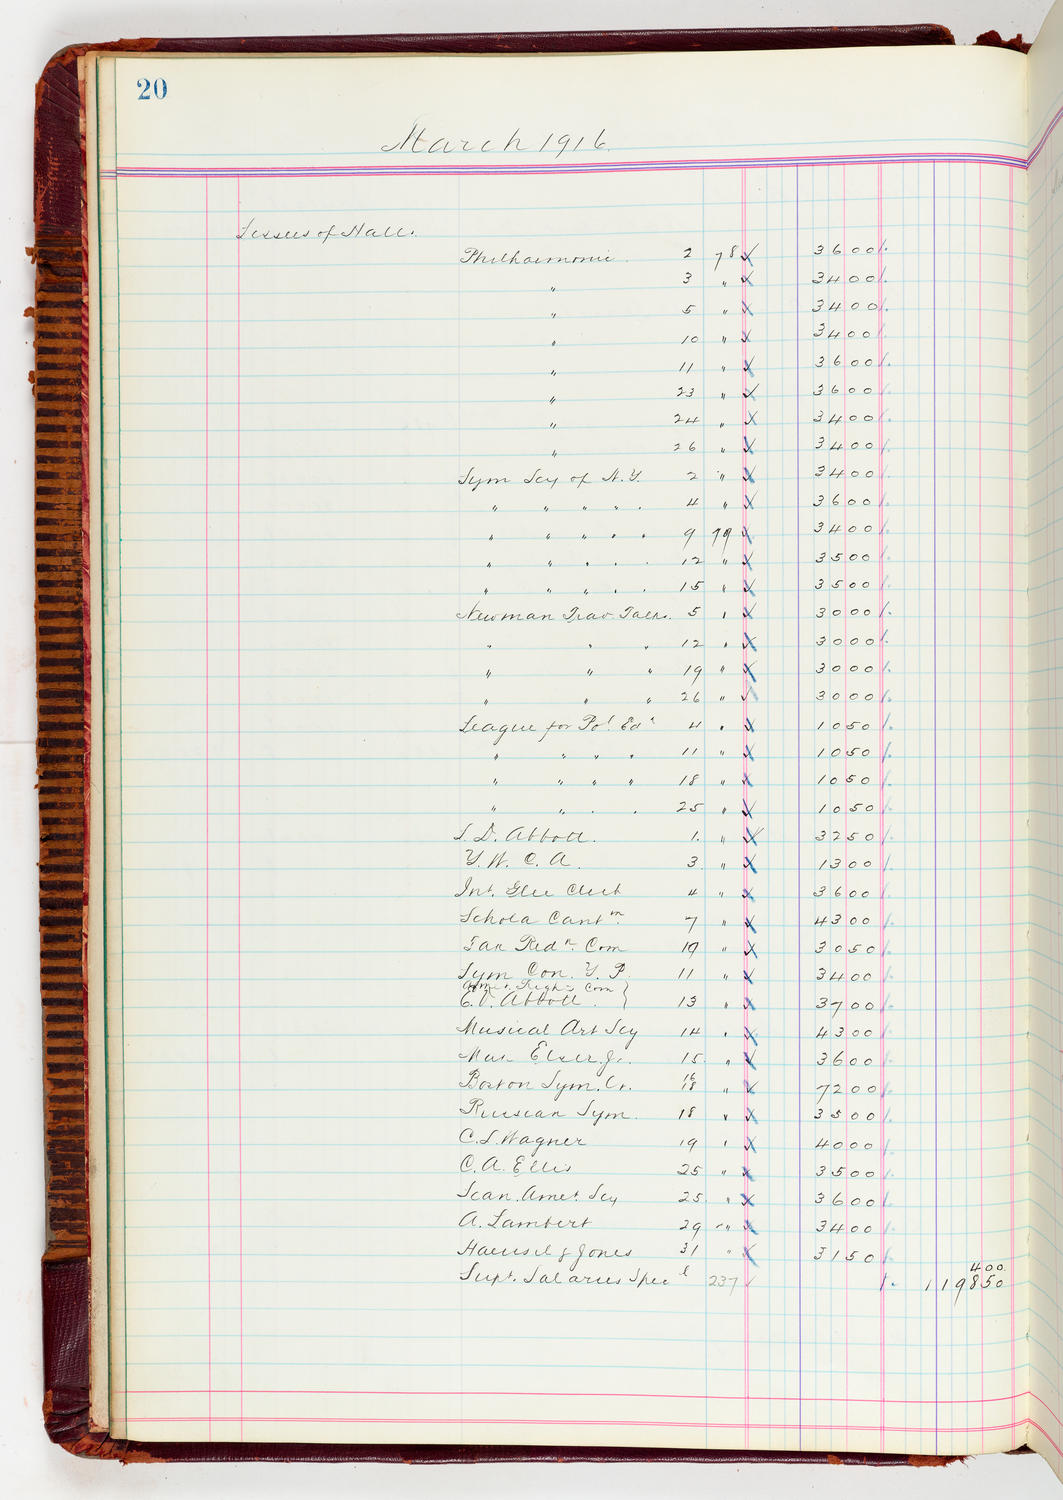 20
March 1916.
Lessees of Hall.
Philharmonic 2 78 3600
" 3 " 3400
" 5 " 3400
" 10 " 3400
" 11 " 3600
" 23 " 3600
" 24 " 3400
" 26 " 3400
Sym Scy of N.Y. 2 " 3400
" " " " . 4 " 3600
" " " " " 9 79 3400
" " " . . 12 " 3500
" " " . . 15 " 3500
Newman Trav Talks. 5 " 3000
" " " 12 " 3000
" " " 19 " 3000
" " " 26 " 3000
League for Pol. Edn 4 " 1050
" " " " 11 " 1050
" " " " 18 " 1050
" " . . 25 " 1050
L.D. Abbott. 1. " 3250
Y.W.C.A. 3. " 1300
Int. Glee Club 4 " 3600
Schola Cantm. 7 " 4300
Tax Redn. Com 19 " 3050
Sym Con. Y.P. 11 " 3400
Amer. Rights Com
13 " 3700
Abbott.
Musical Art Scy 14 " 4300
Max Elser Jr. 15. " 3600
Boston Sym. Co. 16 18 " 7200
Russian Sym. 18 " 3500
C.L. Wagner 19 " 4000
C.A. Ellis 25 " 3500
Scan. Amer. Scy 25. " 3600
A. Lambert 29 " 3400
Haensel & Jones 31 " 3150
400.
Supt. Salaries Specl 237 119850